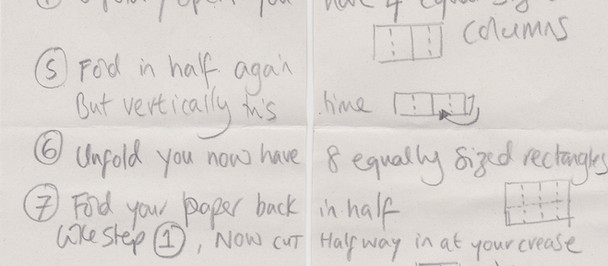 have 4 equal
columns
⑤ Fold in half again
But vertically this time
⑥ Unfold you now have 8 equally sized rectangles
⑦ Fold your paper back in half
like step ①, Now cut Half way in at your crease